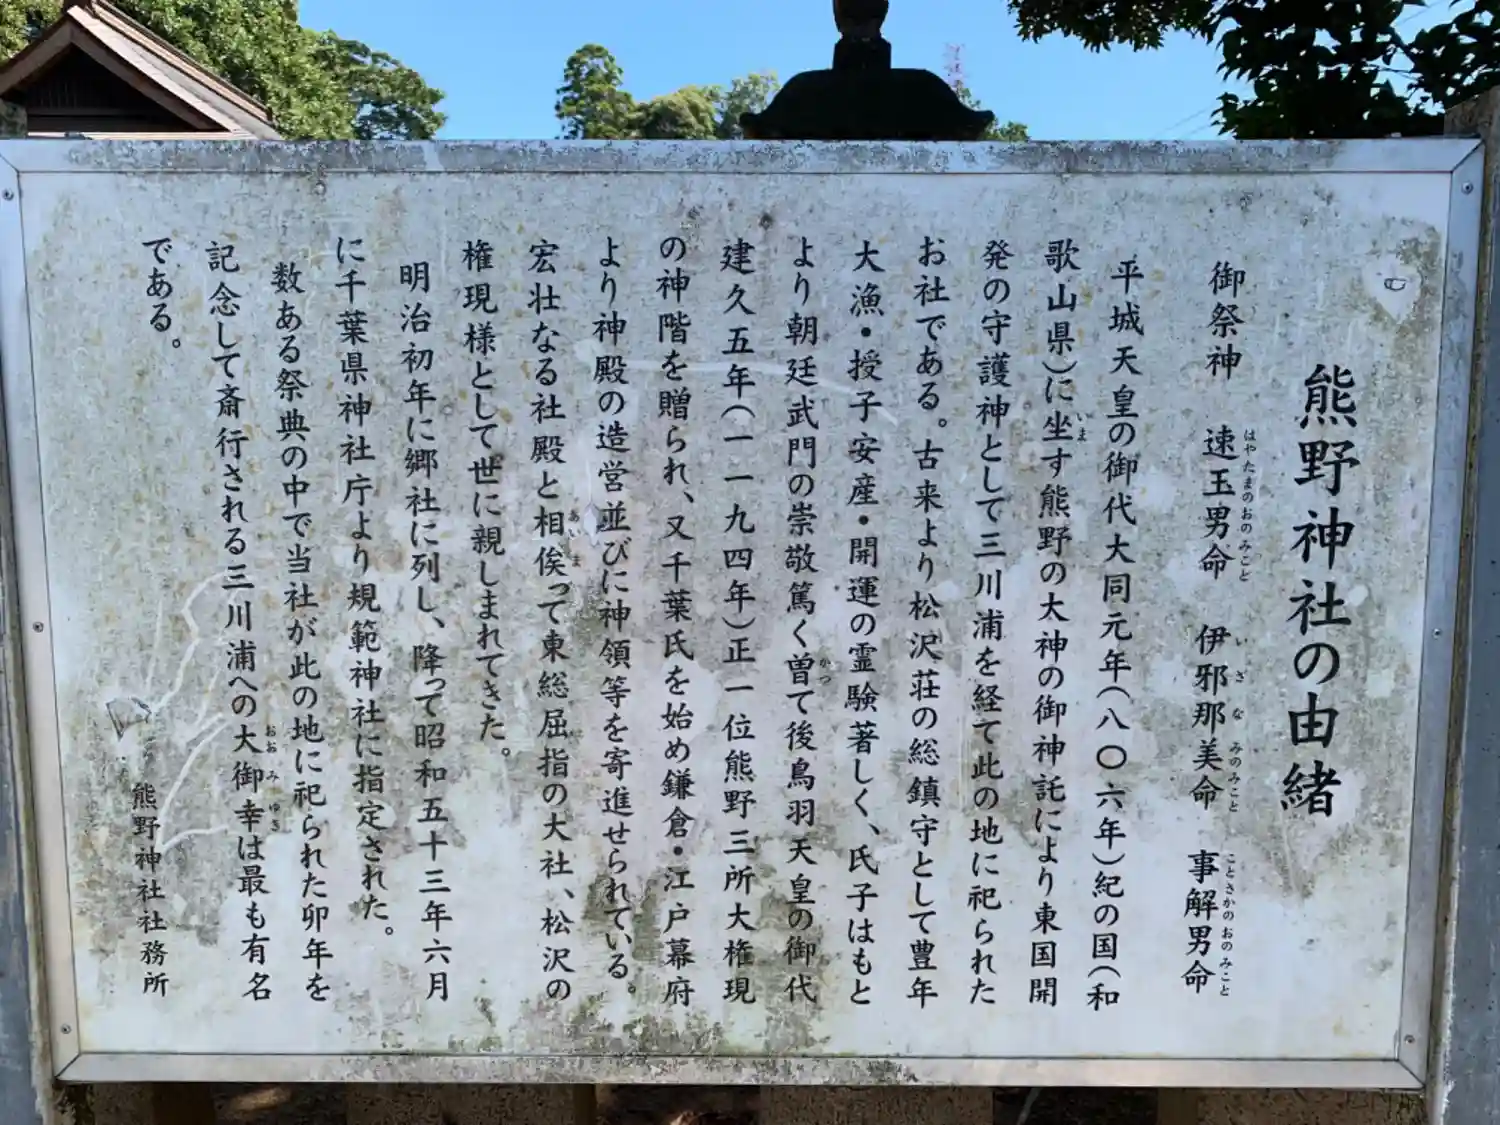 熊野神社の由緒
御祭神 速玉男命 伊邪那美命 事解男命
はやたまのおのみこと いざなみのみこと ことさかのおのみこと
平城天皇の御代大同元年(八〇六年)紀の国(和
歌山県)に坐す熊野の大神の御神託により東国開
いま
発の守護神として三川浦を経て此の地に祀られた
お社である。古来より松沢荘の総鎮守として豊年
大漁・授子安産・開運の霊験著しく、氏子はもと
より朝廷武門の崇敬篤く曽て後鳥羽天皇の御代
かつ
建久五年(一一九四年)正一位熊野三所大権現
の神階を贈られ、又千葉氏を始め鎌倉・江戸幕府
より神殿の造営並びに神領等を寄進せられている。
宏壮なる社殿と相俟って東総屈指の大社、松沢の
あいま
権現様として世に親しまれてきた。
明治初年に郷社に列し、降って昭和五十三年六月
に千葉県神社庁より規範神社に指定された。
数ある祭典の中で当社が此の地に祀られた卯年を
記念して斎行される三川浦への大御幸は最も有名
おおみゆき
である。
熊野神社社務所